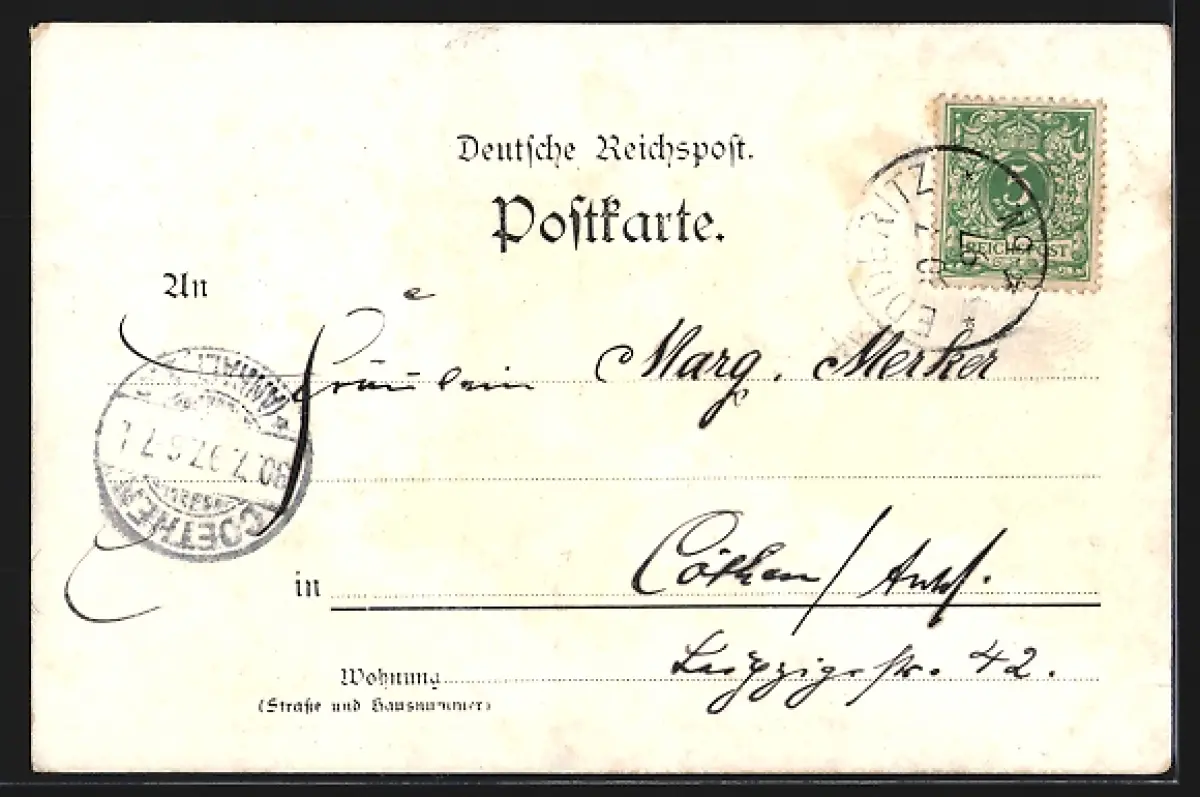 Deutsche Reichspost.
Postkarte.
5
REICHSPOST
An
Fräulein Marg. Merker
COETHEN
(ANHALT)
30.7.97.6-7
in Cöthen / Anh.
Wohnung Leipzigerstr. 42.
(Straße und Hausnummer)